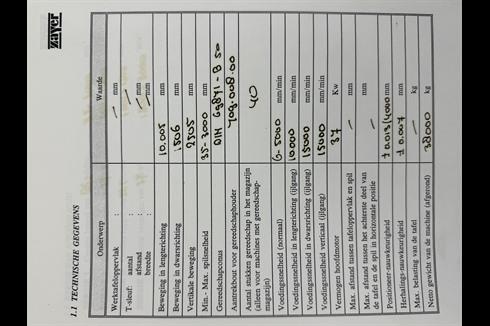 zayer
1.1 TECHNISCHE GEGEVENS
Onderwerp Waarde
Werktafeloppervlak : — mm
T-sleuf: aantal : —
afstand : — mm
breedte : — mm
Beweging in lengterichting 10.005 mm
Beweging in dwarsrichting 1506 mm
Vertikale beweging 2505 mm
Min. - Max. spilsnelheid 35-3000 mm
Gereedschapconus DIN 69871-B 50
Aantrekbout voor gereedschaphouder 708.008.00
Aantal stukken gereedschap in het magazijn
(alleen voor machines met gereedschap-
magazijn) 40
Voedingssnelheid (normaal) 0-5000 mm/min
Voedingssnelheid in lengterichting (ijlgang) 10.000 mm/min
Voedingssnelheid in dwarsrichting (ijlgang) 15000 mm/min
Voedingssnelheid verticaal (ijlgang) 15000 mm/min
Vermogen hoofdmotor 37 Kw
Max. afstand tussen tafeloppervlak en spil — mm
Max. afstand tussen het achterste deel van
de tafel en de spil in horizontale positie — mm
Positioneer-nauwkeurigheid ± 0.013/4000 mm
Herhalings-nauwkeurigheid ± 0.007 mm
Max. belasting van de tafel — kg
Netto gewicht van de machine (afgerond) 38000 kg